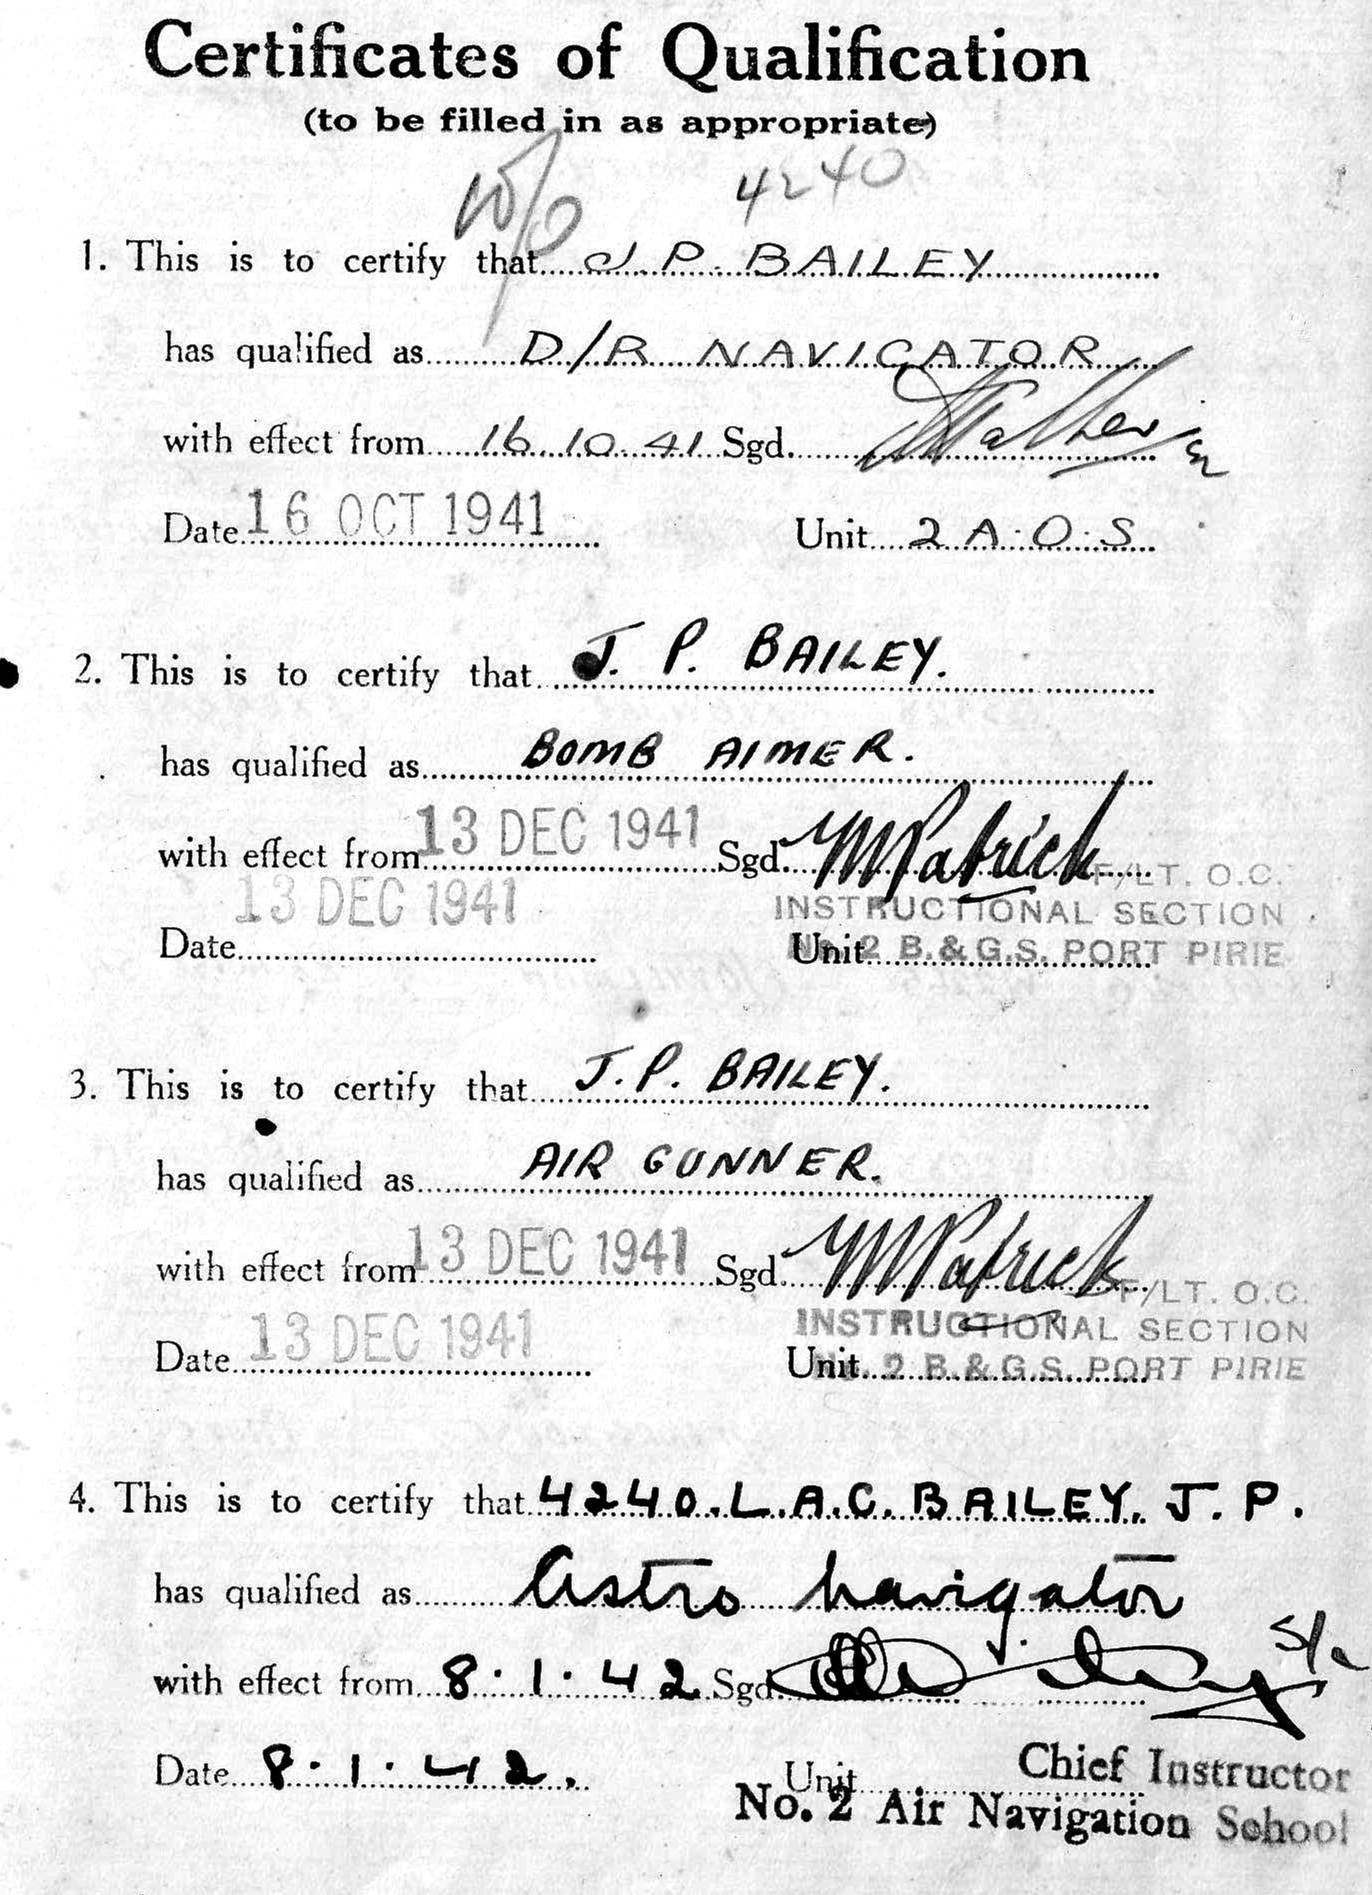 Certificates of Qualification
(to be filled in as appropriate)
4240
1. This is to certify that J. P. BAILEY
has qualified as D/R NAVIGATOR
with effect from 16.10.41 Sgd.
Date 16 OCT 1941 Unit 2 A.O.S
2. This is to certify that J. P. BAILEY.
has qualified as BOMB AIMER.
with effect from 13 DEC 1941 Sgd. M Patrick
F/LT. O.C.
13 DEC 1941 INSTRUCTIONAL SECTION
Date Unit No. 2 B.&G.S. PORT PIRIE
3. This is to certify that J. P. BAILEY.
has qualified as AIR GUNNER.
with effect from 13 DEC 1941 Sgd. M Patrick
F/LT. O.C.
INSTRUCTIONAL SECTION
Date 13 DEC 1941 Unit No. 2 B.&G.S. PORT PIRIE
4. This is to certify that 4240. L.A.C. BAILEY. J. P.
has qualified as Astro navigator
with effect from 8.1.42 Sgd. S/L
Date 8.1.42. Unit Chief Instructor
No. 2 Air Navigation School